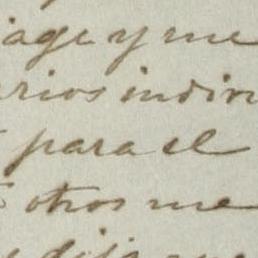 iage y me
rios indivi
para el
otros me